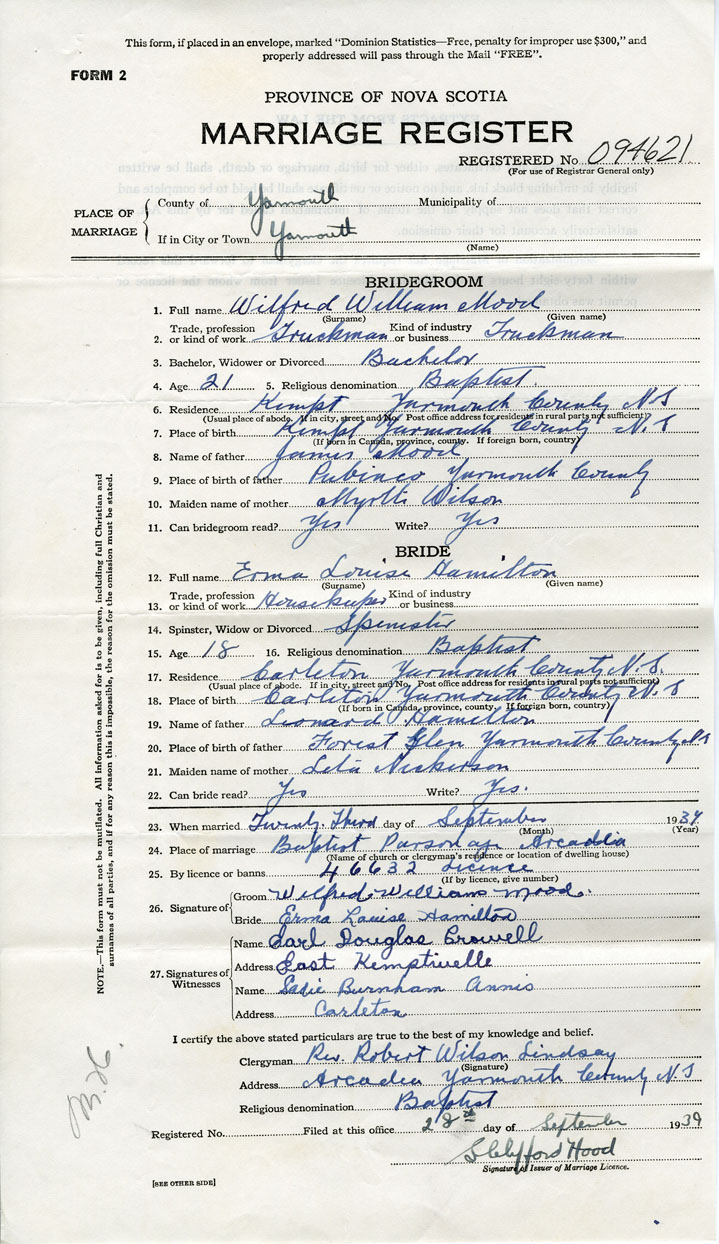 This form, if placed in an envelope, marked "Dominion Statistics—Free, penalty for improper use $300," and
properly addressed will pass through the Mail "FREE".
FORM 2
PROVINCE OF NOVA SCOTIA
MARRIAGE REGISTER
REGISTERED No. 094621
(For use of Registrar General only)
PLACE OF MARRIAGE
County of Yarmouth Municipality of
If in City or Town Yarmouth
(Name)
BRIDEGROOM
1. Full name Wilfred William Mood
(Surname) (Given name)
Trade, profession Kind of industry
2. or kind of work Truckman or business Truckman
3. Bachelor, Widower or Divorced Bachelor
4. Age 21 5. Religious denomination Baptist
6. Residence Kempt Yarmouth County N.S
(Usual place of abode. If in city, street and No. Post office address for residents in rural parts not sufficient)
7. Place of birth Kempt Yarmouth County N.S
(If born in Canada, province, county. If foreign born, country)
8. Name of father James Mood
9. Place of birth of father Pubinco Yarmouth County
10. Maiden name of mother Myrtle Wilson
11. Can bridegroom read? Yes Write? Yes
BRIDE
12. Full name Erma Louise Hamilton
(Surname) (Given name)
Trade, profession Kind of industry
13. or kind of work Housekeeper or business
14. Spinster, Widow or Divorced Spinister
15. Age 18 16. Religious denomination Baptist
17. Residence Carleton Yarmouth County N.S.
(Usual place of abode. If in city, street and No. Post office address for residents in rural parts not sufficient)
18. Place of birth Carleton Yarmouth County N.S
(If born in Canada, province, county. If foreign born, country)
19. Name of father Leonard Hamilton
20. Place of birth of father Forest Glen Yarmouth County N.S
21. Maiden name of mother Leta Nickerson
22. Can bride read? Yes Write? Yes.
23. When married Twenty Third day of September 1939
(Month) (Year)
24. Place of marriage Baptist Parsonage Arcadia
(Name of church or clergyman's residence or location of dwelling house)
25. By licence or banns 46632 Licence
(If by licence, give number)
26. Signature of
Groom Wilfred William Mood.
Bride Erma Louise Hamilton
27. Signatures of Witnesses
Name Carl Douglas Crowell
Address East Kemptvelle
Name Sadie Burnham Annis
Address Carleton
I certify the above stated particulars are true to the best of my knowledge and belief.
Clergyman Rev. Robert Wilson Lindsay
(Signature)
Address Arcadia Yarmouth County N.S
Religious denomination Baptist
Registered No. Filed at this office 28th day of September 1939
S Clifford Hood
Signature of Issuer of Marriage Licence.
[SEE OTHER SIDE]
NOTE.—This form must not be mutilated. All information asked for is to be given, including full Christian and
surnames of all parties, and if for any reason this is impossible, the reason for the omission must be stated.